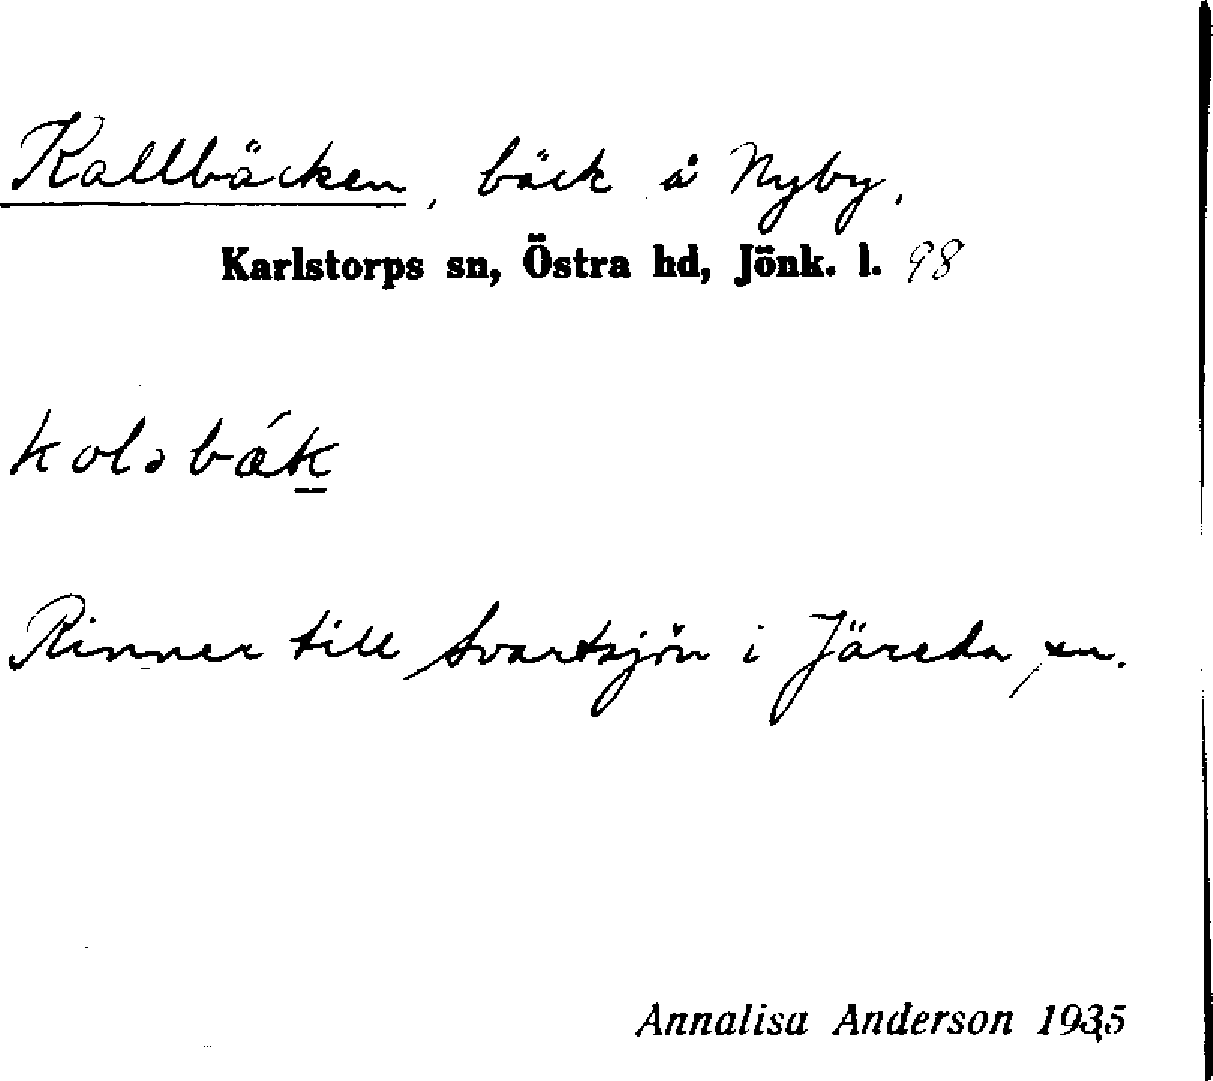 Kallbäcken, bäck å Nyby.
Karlstorps sn, Östra hd, Jönk. l. 98
Rinner till Svartsjön i Järeda sn.
Annalisa Anderson 1935